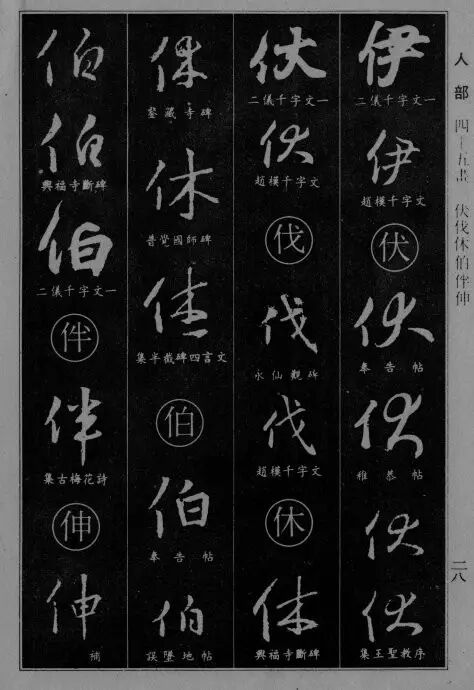 人部 四—五畫 伏伐休伯伴伸
二八
伊
二儀千字文一
伊
趙模千字文
伏
伏
奉告帖
伏
雅恭帖
伏
伏
集王聖教序
伏
二儀千字文一
伏
趙模千字文
伐
伐
永仙觀碑
伐
趙模千字文
休
休
興福寺斷碑
休
鑒藏寺碑
休
普覺國師碑
休
集半截碑四言文
伯
伯
奉告帖
伯
誤墜地帖
伯
伯
興福寺斷碑
伯
二儀千字文一
伴
伴
集古梅花詩
伸
伸
補